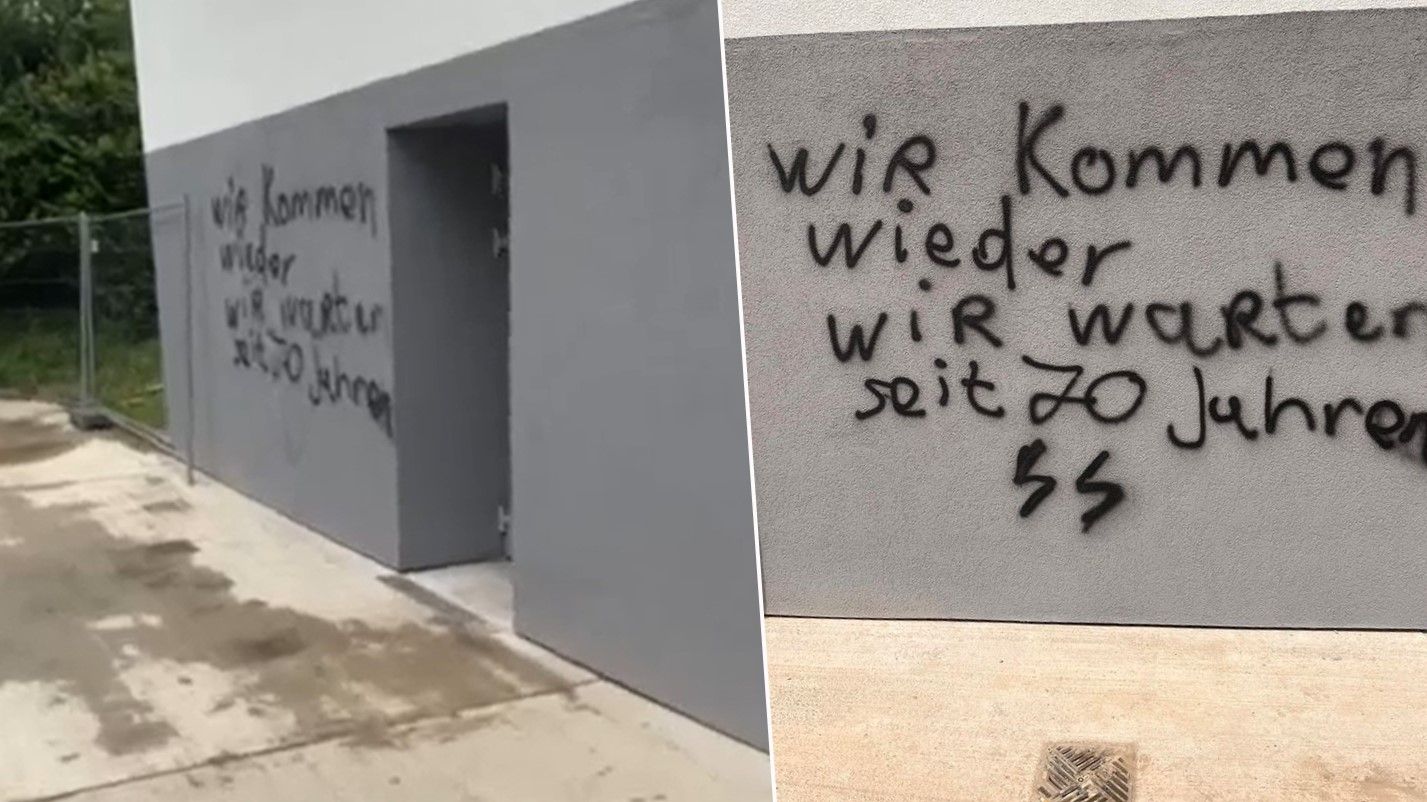 wiR Kommen
wieder
wiR waRter
seit 70 Jahren
wiR Kommen
wieder
wiR waRter
seit 70 Jahren
SS